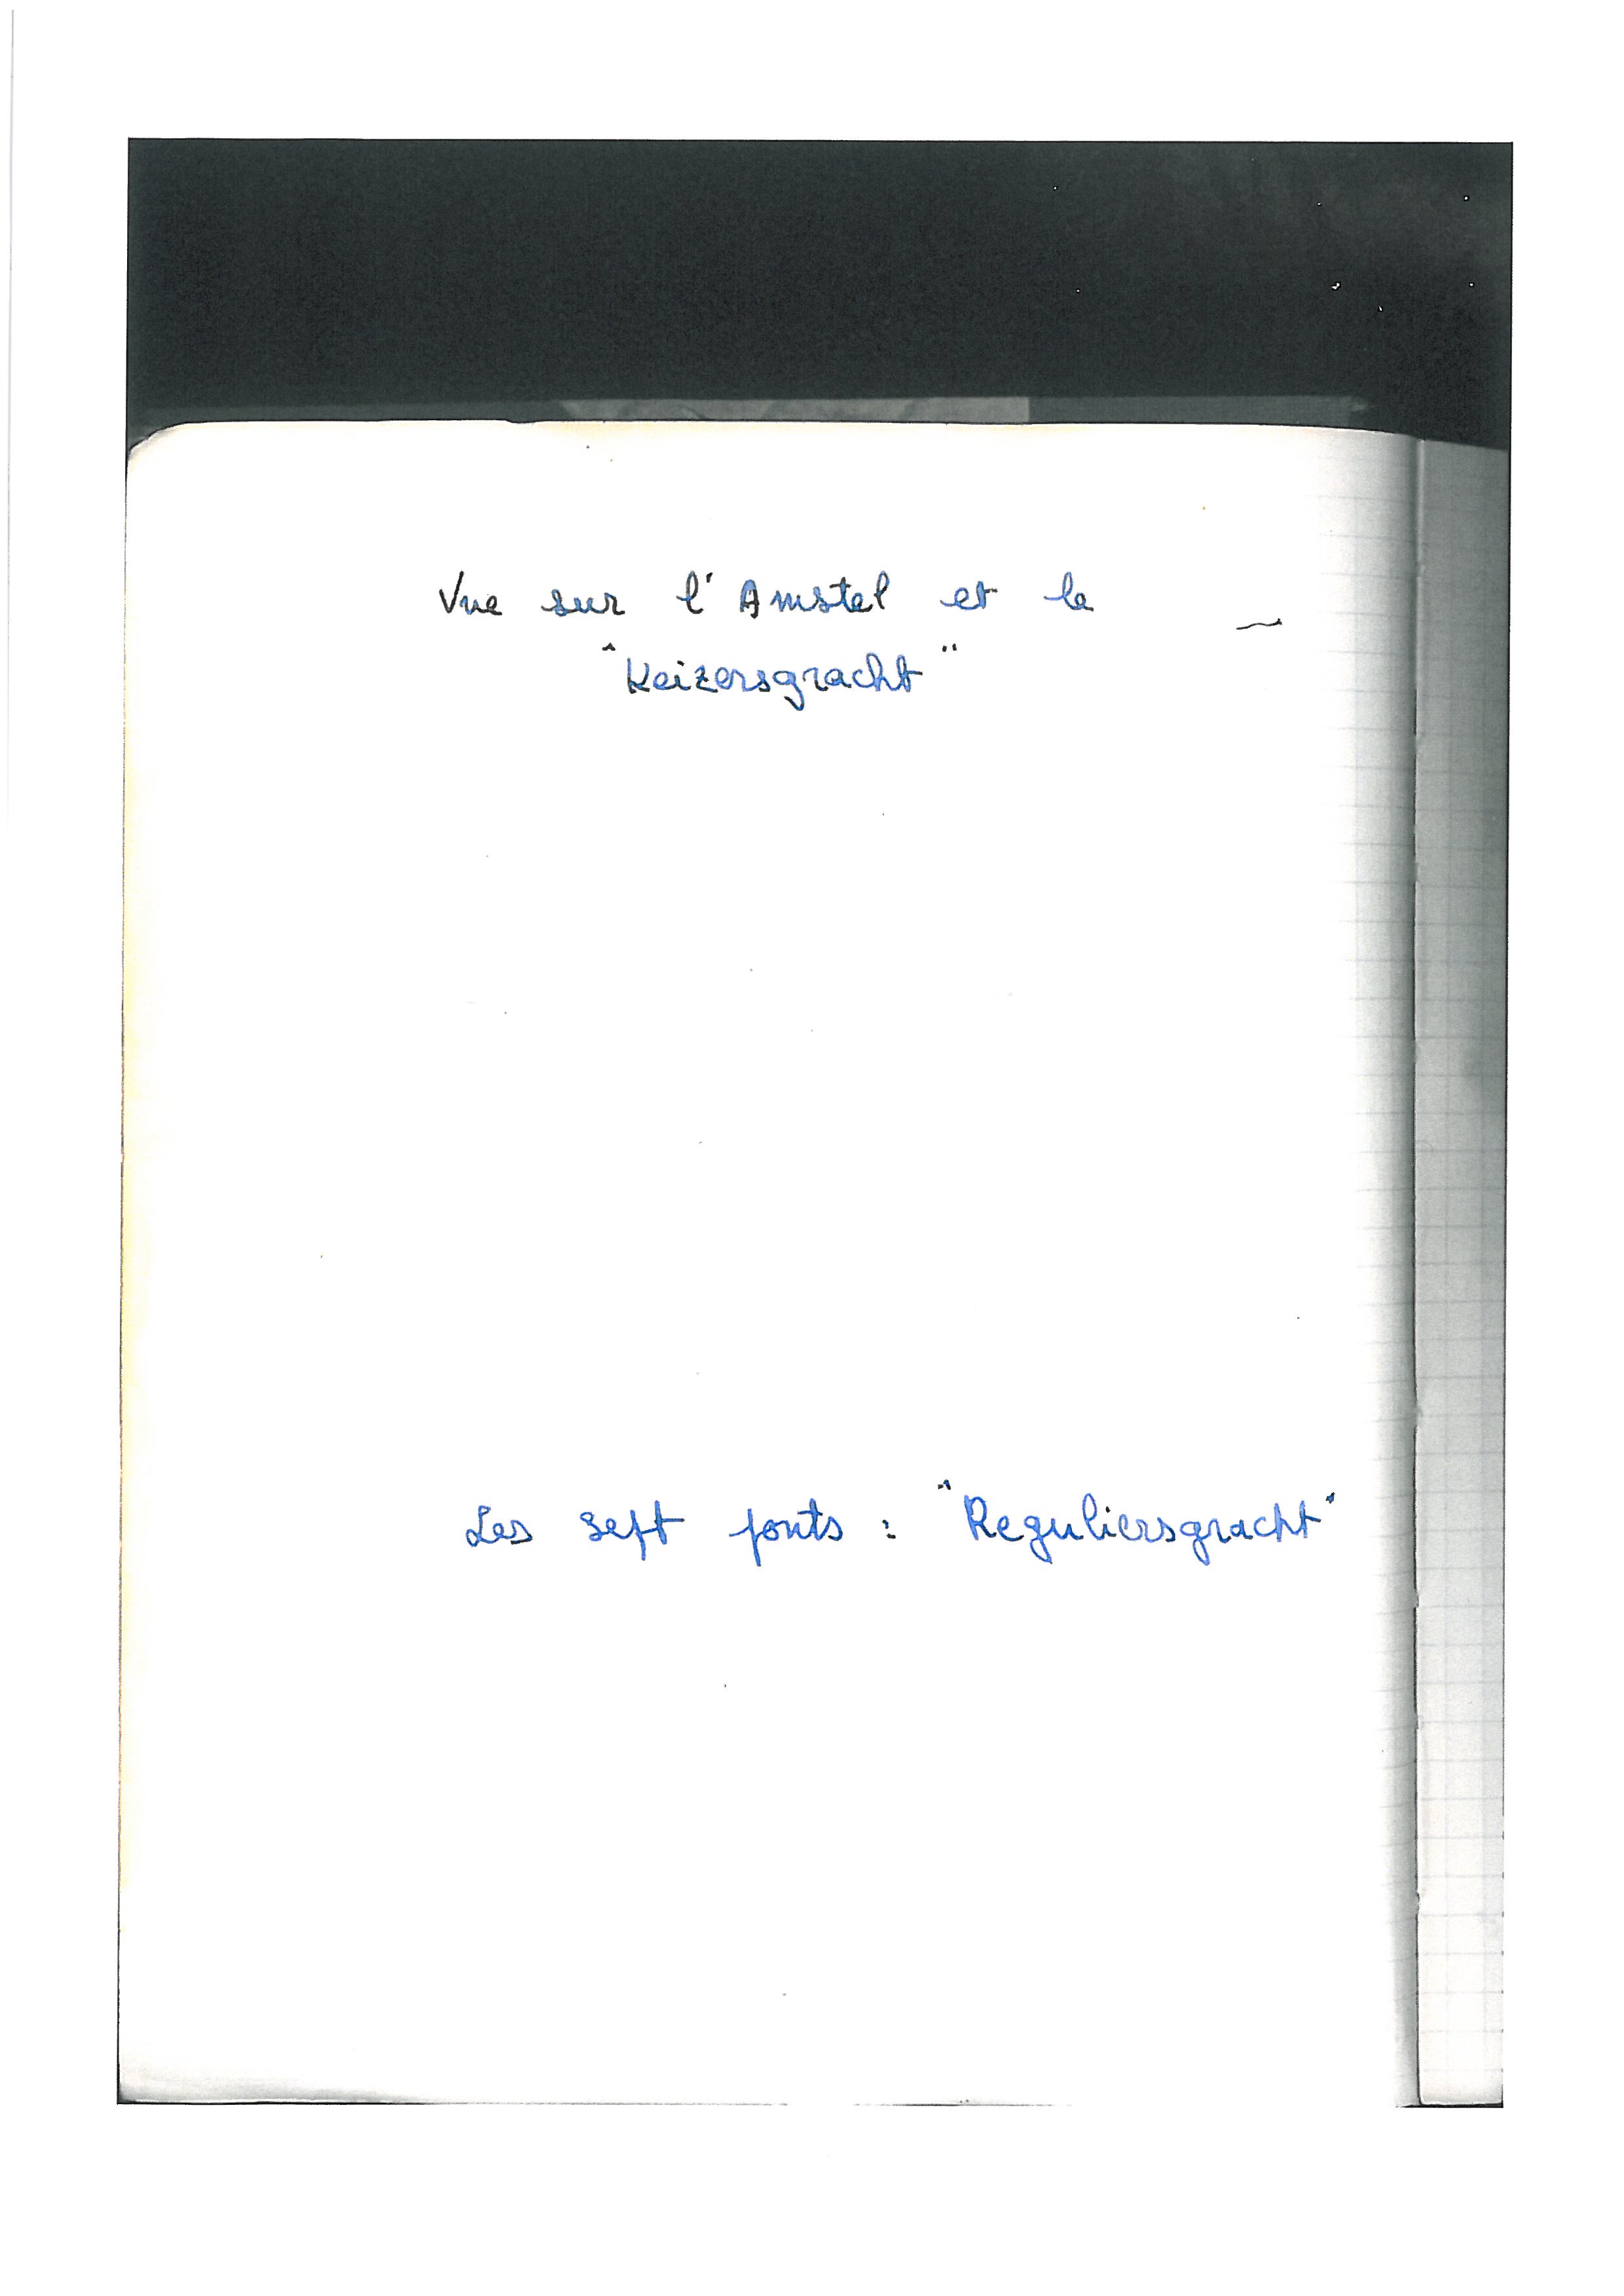 Vue sur l'Amstel et le
"Keizersgracht"
Les sept ponts : "Reguliersgracht"